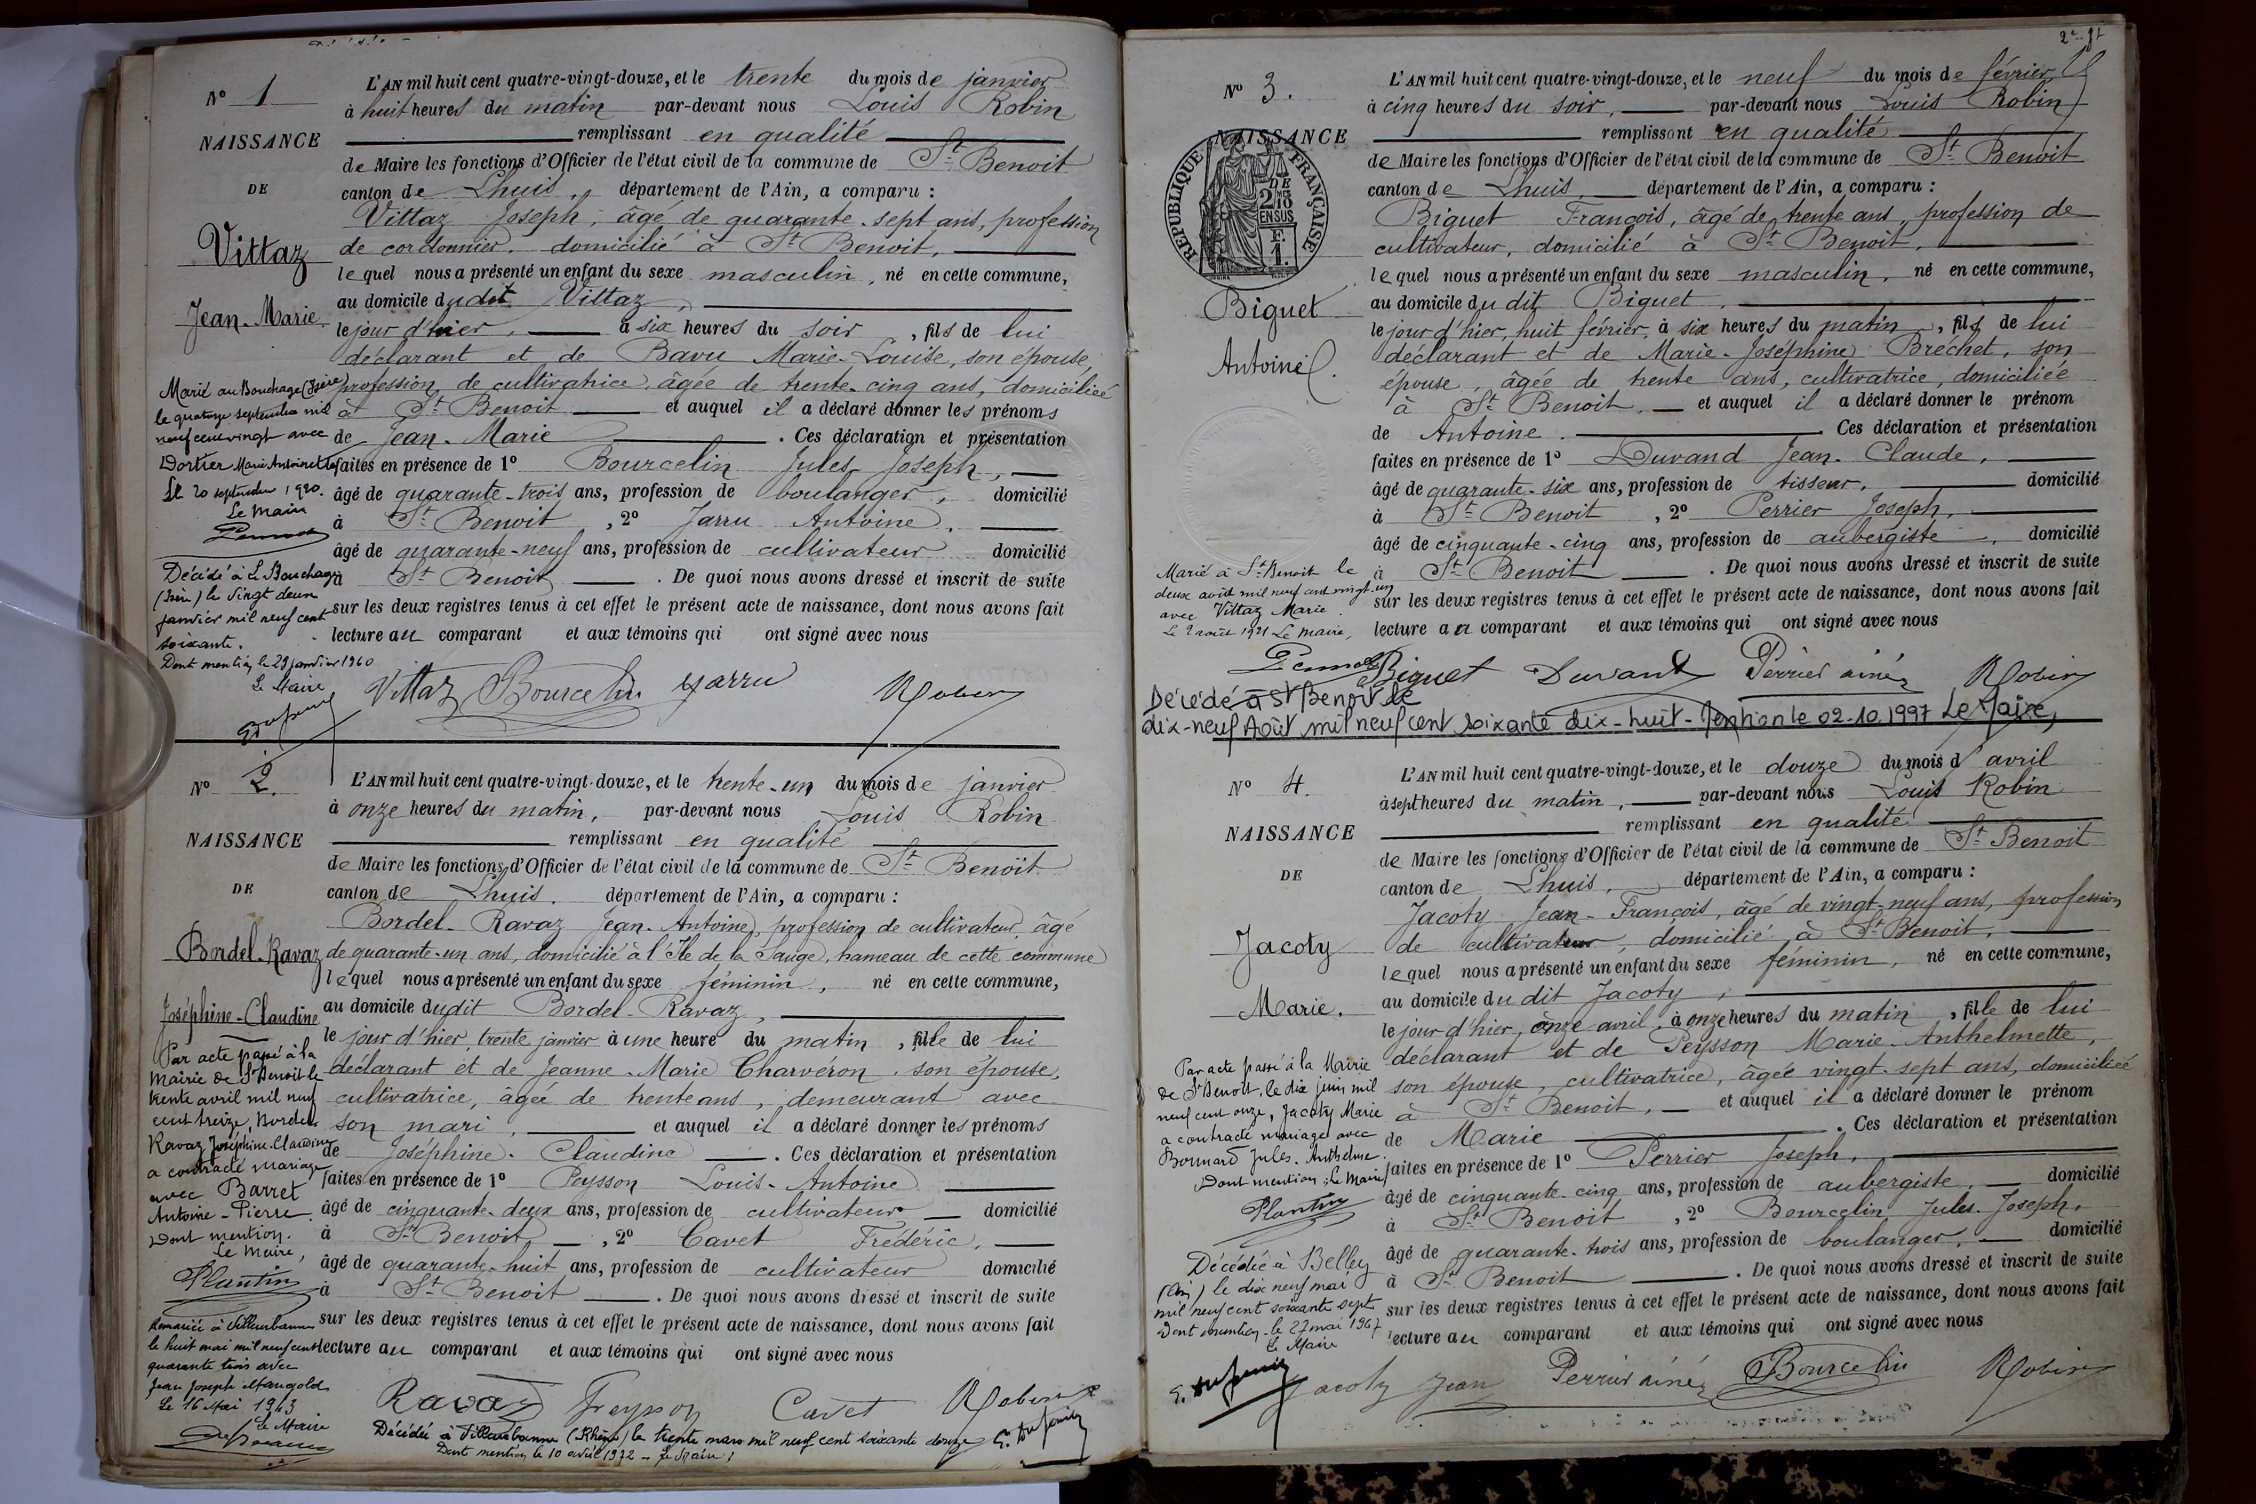 N° 1
NAISSANCE
DE
Vittaz
Jean-Marie
L'AN mil huit cent quatre-vingt-douze, et le trente du mois de janvier
à huit heures du matin par-devant nous Louis Robin
remplissant en qualité
de Maire les fonctions d'Officier de l'état civil de la commune de St Benoit
canton de Lhuis, département de l'Ain, a comparu :
Vittaz Joseph, âgé de quarante-sept ans, profession
de cordonnier, domicilié à St Benoit,
lequel nous a présenté un enfant du sexe masculin, né en cette commune,
au domicile dudit Vittaz,
le jour d'hier, à six heures du soir, fils de lui
déclarant et de Bavu Marie-Louise, son épouse,
profession de cultivatrice, âgée de trente-cinq ans, domiciliée
à St Benoit et auquel il a déclaré donner les prénoms
de Jean-Marie. Ces déclaration et présentation
faites en présence de 1° Bourcelin Jules Joseph,
âgé de quarante-trois ans, profession de boulanger, domicilié
à St Benoit, 2° Jarru Antoine,
âgé de quarante-neuf ans, profession de cultivateur domicilié
à St Benoit. De quoi nous avons dressé et inscrit de suite
sur les deux registres tenus à cet effet le présent acte de naissance, dont nous avons fait
lecture au comparant et aux témoins qui ont signé avec nous
Vittaz Bourcelin Jarru Robin
Marié au Bouchage (Isère)
le quatorze septembre mil
neuf cent vingt avec
Dortier Marie Antoinette
Le 20 septembre 1920.
Le Maire
Décédé à Le Bouchage
(Isère) le vingt deux
janvier mil neuf cent
soixante.
Dont mention le 29 janvier 1960
Le Maire
N° 2.
NAISSANCE
DE
Bordel-Ravaz
Joséphine-Claudine
L'AN mil huit cent quatre-vingt-douze, et le trente-un du mois de janvier
à onze heures du matin, par-devant nous Louis Robin
remplissant en qualité
de Maire les fonctions d'Officier de l'état civil de la commune de St Benoit
canton de Lhuis. département de l'Ain, a comparu :
Bordel-Ravaz Jean-Antoine, profession de cultivateur, âgé
de quarante-un ans, domicilié à l'Ile de la Sauge, hameau de cette commune
lequel nous a présenté un enfant du sexe féminin, né en cette commune,
au domicile dudit Bordel-Ravaz,
le jour d'hier, trente janvier à une heure du matin, fille de lui
déclarant et de Jeanne-Marie Charvéron, son épouse,
cultivatrice, âgée de trente ans, demeurant avec
son mari, et auquel il a déclaré donner les prénoms
de Joséphine-Claudine. Ces déclaration et présentation
faites en présence de 1° Peysson Louis-Antoine
âgé de cinquante-deux ans, profession de cultivateur domicilié
à St Benoit, 2° Cavet Frédéric,
âgé de quarante-huit ans, profession de cultivateur domicilié
à St Benoit. De quoi nous avons dressé et inscrit de suite
sur les deux registres tenus à cet effet le présent acte de naissance, dont nous avons fait
lecture au comparant et aux témoins qui ont signé avec nous
Ravaz Peysson Cavet Robin
Décédée à Villeurbanne (Rhône) le trente mars mil neuf cent soixante douze
Dont mention le 10 avril 1972 - Le Maire,
Par acte passé à la
Mairie de St Benoit le
trente avril mil neuf
cent treize, Bordel-
Ravaz Joséphine Claudine
a contracté mariage
avec Barret
Antoine-Pierre.
Dont mention.
Le Maire,
Plantin
Remariée à Villeurbanne
le huit mai mil neuf cent
quarante trois avec
Jean Joseph Mangold
Le 16 Mai 1943
Le Maire
2e ft
N° 3.
NAISSANCE
DE
RÉPUBLIQUE FRANÇAISE
2/10
EN SUS
F.
1.
Biguet
Antoine.
L'AN mil huit cent quatre-vingt-douze, et le neuf du mois de février
à cinq heures du soir, par-devant nous Louis Robin
remplissant en qualité
de Maire les fonctions d'Officier de l'état civil de la commune de St Benoit
canton de Lhuis, département de l'Ain, a comparu :
Biguet François, âgé de trente ans, profession de
cultivateur, domicilié à St Benoit,
lequel nous a présenté un enfant du sexe masculin, né en cette commune,
au domicile dudit Biguet,
le jour d'hier, huit février, à six heures du matin, fils de lui
déclarant et de Marie-Joséphine Bréchet, son
épouse, âgée de trente ans, cultivatrice, domiciliée
à St Benoit, et auquel il a déclaré donner le prénom
de Antoine. Ces déclaration et présentation
faites en présence de 1° Durand Jean-Claude,
âgé de quarante-six ans, profession de tisseur, domicilié
à St Benoit, 2° Perrier Joseph,
âgé de cinquante-cinq ans, profession de aubergiste, domicilié
à St Benoit. De quoi nous avons dressé et inscrit de suite
sur les deux registres tenus à cet effet le présent acte de naissance, dont nous avons fait
lecture au comparant et aux témoins qui ont signé avec nous
Biguet Durand Perrier ainé Robin
Marié à St Benoit le
deux août mil neuf cent vingt-un
avec Vittaz Marie.
Le 2 août 1921 Le Maire,
Décédé à St Benoit le
dix-neuf Août mil neuf cent soixante dix-huit - Mention le 02.10.1997 Le Maire,
N° 4.
NAISSANCE
DE
Jacoty
Marie.
L'AN mil huit cent quatre-vingt-douze, et le douze du mois d'avril
à sept heures du matin, par-devant nous Louis Robin
remplissant en qualité
de Maire les fonctions d'Officier de l'état civil de la commune de St Benoit
canton de Lhuis, département de l'Ain, a comparu :
Jacoty Jean-François, âgé de vingt-neuf ans, profession
de cultivateur, domicilié à St Benoit,
lequel nous a présenté un enfant du sexe féminin, né en cette commune,
au domicile dudit Jacoty,
le jour d'hier, onze avril, à onze heures du matin, fille de lui
déclarant et de Peysson Marie-Anthelmette,
son épouse, cultivatrice, âgée vingt-sept ans, domiciliée
à St Benoit, et auquel il a déclaré donner le prénom
de Marie. Ces déclaration et présentation
faites en présence de 1° Perrier Joseph,
âgé de cinquante-cinq ans, profession de aubergiste, domicilié
à St Benoit, 2° Bourcelin Jules-Joseph,
âgé de quarante-trois ans, profession de boulanger, domicilié
à St Benoit. De quoi nous avons dressé et inscrit de suite
sur les deux registres tenus à cet effet le présent acte de naissance, dont nous avons fait
lecture au comparant et aux témoins qui ont signé avec nous
Jacoty Jean Perrier ainé Bourcelin Robin
Par acte passé à la Mairie
de St Benoit, le dix juin mil
neuf cent onze, Jacoty Marie
a contracté mariage avec
Bonnard Jules-Anthelme.
Dont mention : Le Maire
Plantin
Décédée à Belley
(Ain) le dix neuf mai
mil neuf cent soixante sept
Dont mention le 27 mai 1967
Le Maire